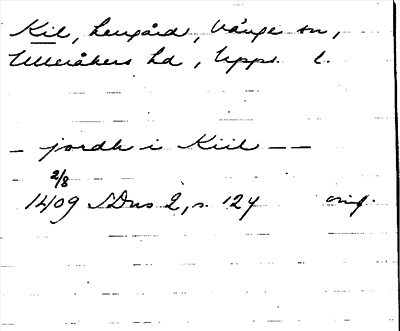 Kil, hemgård, Vänge sn,
Ulleråkers hd, Upps. l.
— jordh i Kiil — —
2/8
1409 SDns 2, s. 124 orig.